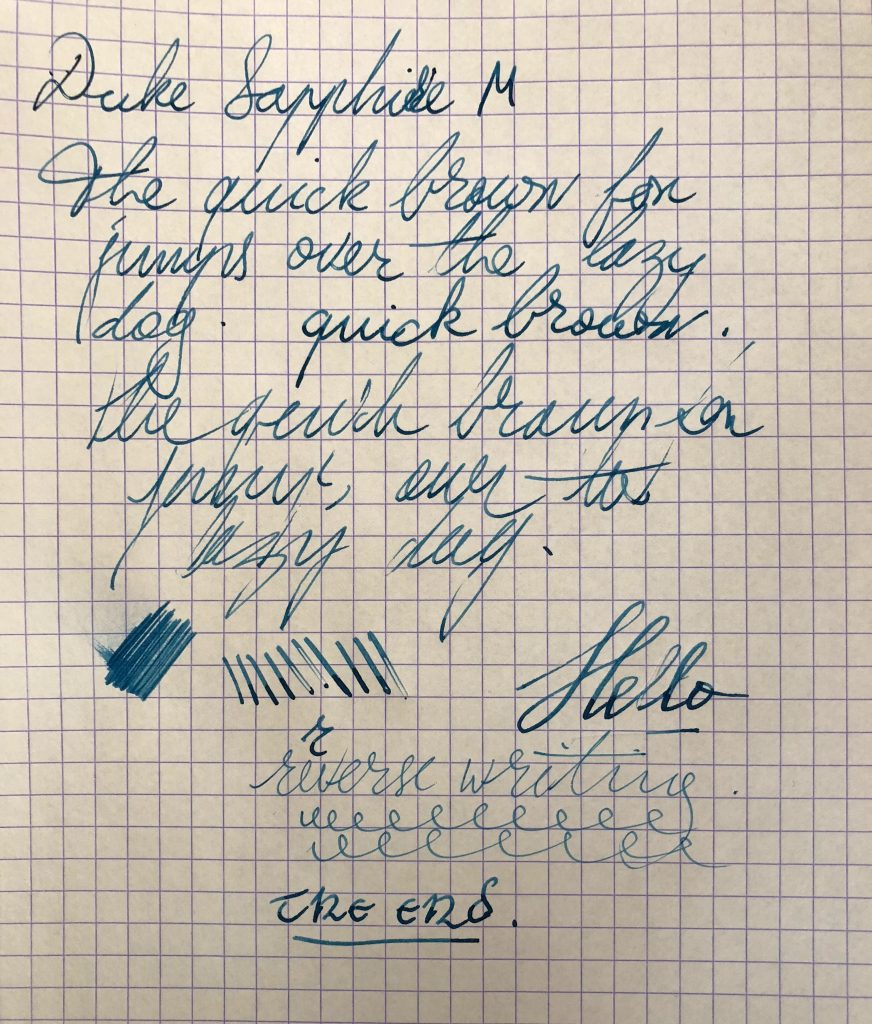 Duke Sapphire M
The quick brown fox
jumps over the lazy
dog. quick brown.
the quick brown fox
jumps over the
lazy dog.
Hello
r
reverse writing.
THE END.